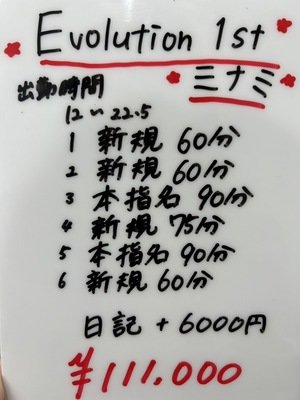 Evolution 1st
ミナミ
出勤時間
12〜22.5
1 新規 60分
2 新規 60分
3 本指名 90分
4 新規 75分
5 本指名 90分
6 新規 60分
日記 + 6000円
¥111,000